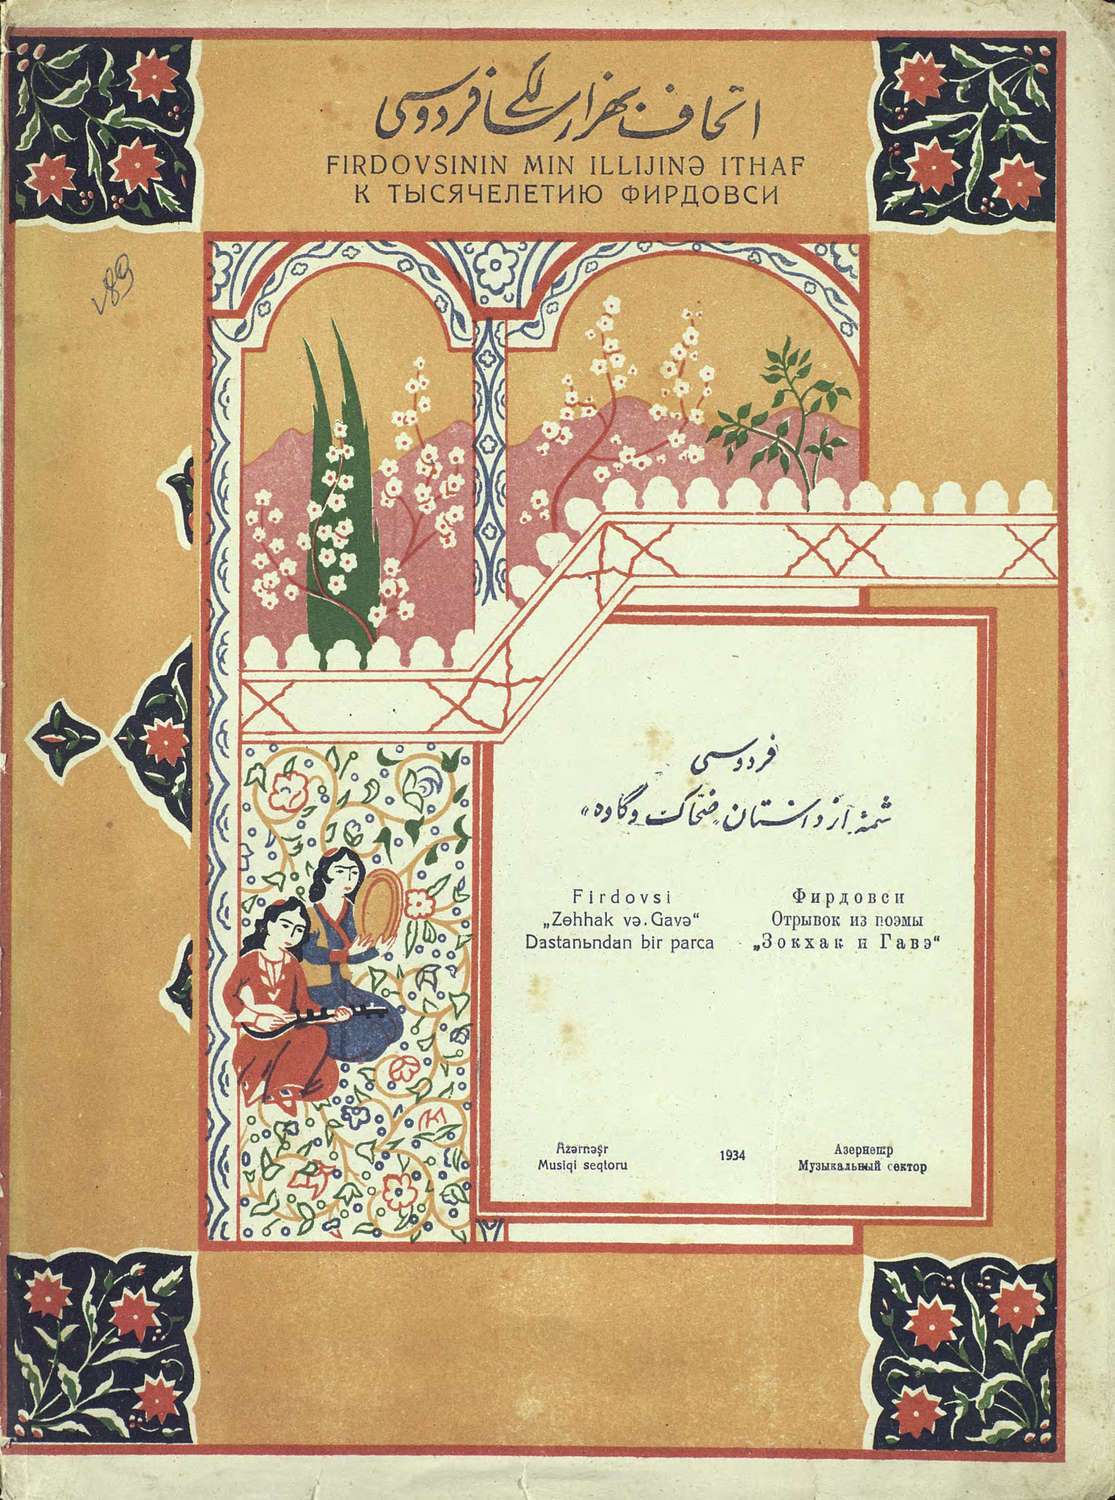 اتحاف بهزار سالگی فردوسی
FIRDOVSININ MIN ILLIJINƏ ITHAF
К ТЫСЯЧЕЛЕТИЮ ФИРДОВСИ
V89
فردوسی
شمهٔ از داستان «ضحاک و گاوه»
Firdovsi
„Zəhhak və. Gavə“
Dastanьndan bir parca
Фирдовси
Отрывок из поэмы
„Зокхак и Гавэ“
Azərnəşr
Musiqi seqtoru
1934
Азернешр
Музыкальный сектор